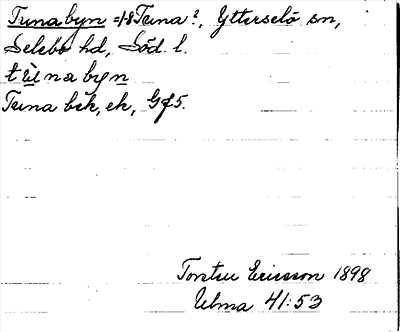 Tunabyn = Tuna?, Ytterselö sn,
Selebo hd, Söd. l.
tùna byn
Tuna bek, ek, Gf5.
Torsten Ericsson 1898
Ulma 41:53